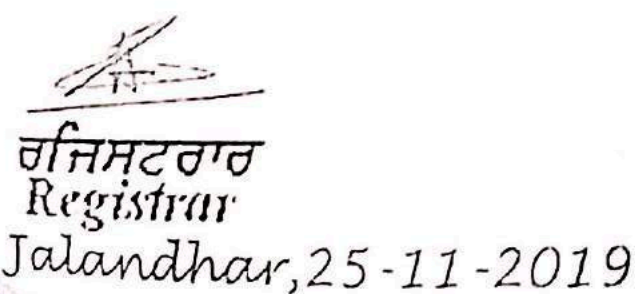 ਰਜਿਸਟਰਾਰ
Registrar
Jalandhar,25-11-2019